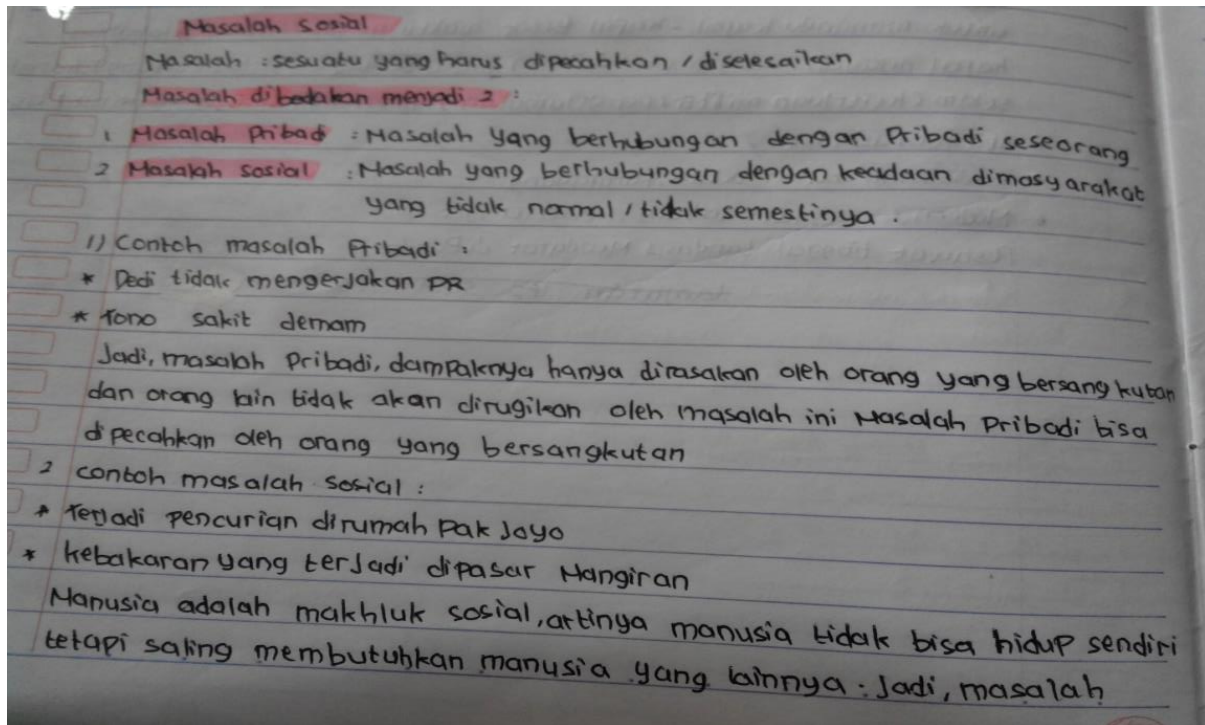 Masalah sosial
Masalah : sesuatu yang harus dipecahkan / diselesaikan
Masalah dibedakan menjadi 2 :
1 Masalah Pribadi : Masalah yang berhubungan dengan Pribadi seseorang
2 Masalah sosial : Masalah yang berhubungan dengan keadaan dimasyarakat
yang tidak normal / tidak semestinya .
1) Contoh masalah Pribadi :
* Dedi tidak mengerjakan PR
* Tono sakit demam
Jadi, masalah Pribadi, dampaknya hanya dirasakan oleh orang yang bersangkutan
dan orang lain tidak akan dirugikan oleh masalah ini Masalah Pribadi bisa
dipecahkan oleh orang yang bersangkutan
2 contoh masalah sosial :
* Terjadi pencurian dirumah Pak Joyo
* kebakaran yang terjadi dipasar Mangiran
Manusia adalah makhluk sosial, artinya manusia tidak bisa hidup sendiri
tetapi saling membutuhkan manusia yang lainnya . Jadi, masalah